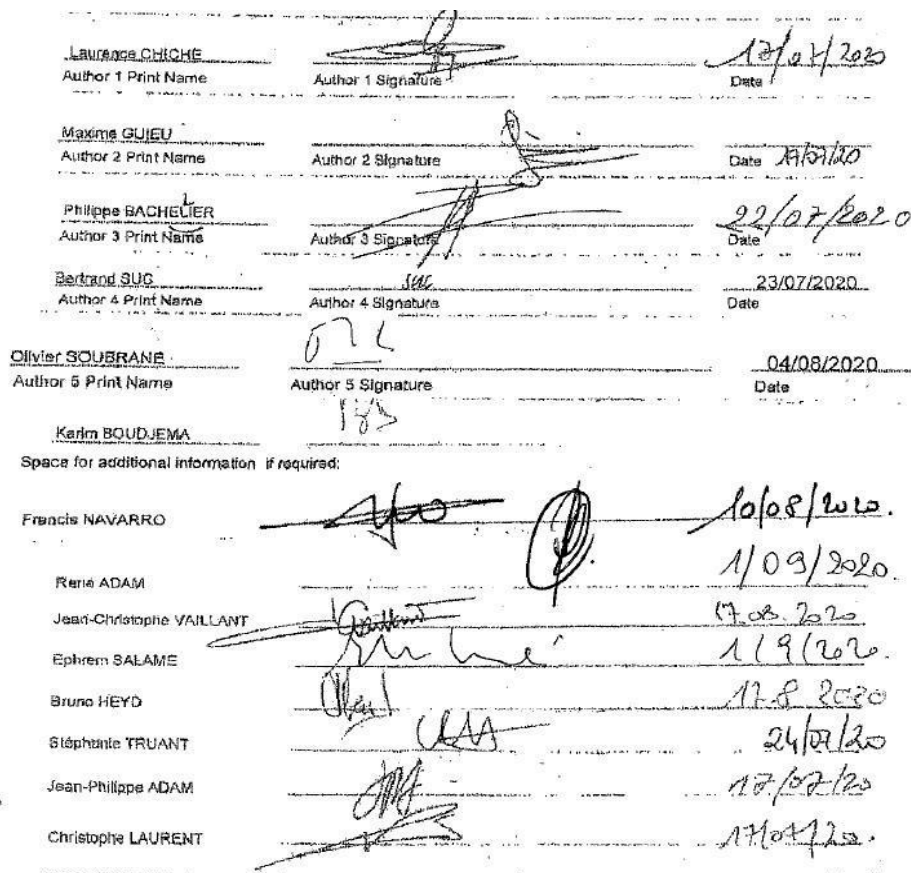 Laurence CHICHE 17/07/2020
Author 1 Print Name Author 1 Signature Date
Maxime GUIEU
Author 2 Print Name Author 2 Signature Date 17/07/20
Philippe BACHELLIER 22/07/2020
Author 3 Print Name Author 3 Signature Date
Bertrand SUC suc 23/07/2020
Author 4 Print Name Author 4 Signature Date
Olivier SOUBRANE 04/08/2020
Author 5 Print Name Author 5 Signature Date
Karim BOUDJEMA
Space for additional information if required:
Francis NAVARRO 10/08/2020.
René ADAM 1/09/2020.
Jean-Christophe VAILLANT Vaillant 17.08.2020
Ephrem SALAME 1/9/2020.
Bruno HEYD 17.8 2020
Stéphanie TRUANT 24/07/20
Jean-Philippe ADAM 17/07/20
Christophe LAURENT 17/07/20.